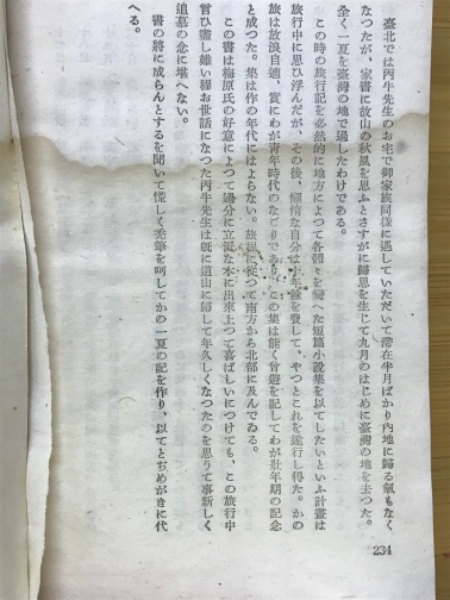 臺北では丙牛先生のお宅で御家族同樣に遇していただいて滯在半月ばかり內地に歸る氣もなく
なつたが、家書に故山の秋風を思ふとさすがに歸思を生じて九月のはじめに臺灣の地を去つた。
全く一夏を臺灣の地で過したわけである。
この時の旅行記を必然的に地方によつて各體々を變へた短篇小說集を以てしたいといふ計畫は
旅行中に思ひ浮んだが、その後、懶惰な自分は十年餘を費して、やつとこれを遂行し得た。かの
旅は放浪自適、實にわが靑年時代のなごりであり、この集は能く曾遊を記してわが壯年期の記念
と成つた。集は作の年代にはよらない。旅程に從つて南方から北部に及んでゐる。
この書は梅原氏の好意によつて過分に立派な本に出來上つて喜ばしいにつけても、この旅行中
言ひ盡し難い程お世話になつた丙牛先生は旣に道山に歸して年久しくなつたのを思うて事新しく
追慕の念に堪へない。
書の將に成らんとするを聞いて慌しく禿筆を呵してかの一夏の記を作り、以てとぢめがきに代
へる。
234